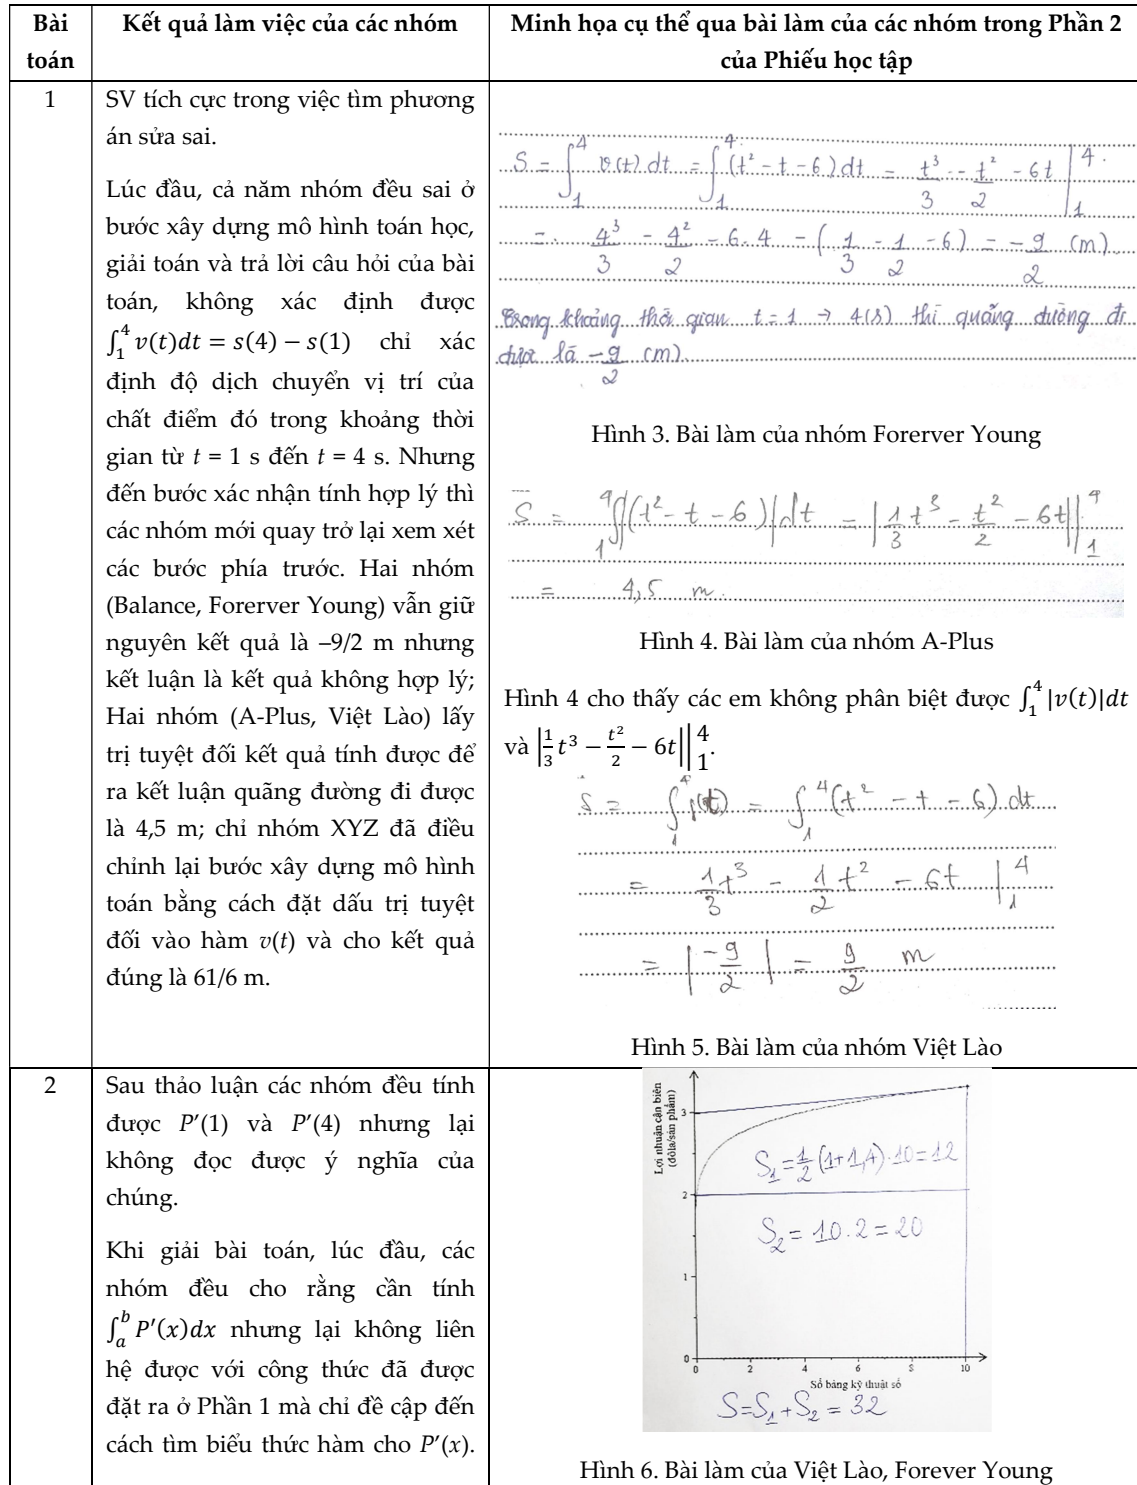 Bài toán
Kết quả làm việc của các nhóm
Minh họa cụ thể qua bài làm của các nhóm trong Phần 2
của Phiếu học tập
1
SV tích cực trong việc tìm phương
án sửa sai.
Lúc đầu, cả năm nhóm đều sai ở
bước xây dựng mô hình toán học,
giải toán và trả lời câu hỏi của bài
toán, không xác định được
∫₁⁴ v(t)dt = s(4) − s(1) chỉ xác
định độ dịch chuyển vị trí của
chất điểm đó trong khoảng thời
gian từ t = 1 s đến t = 4 s. Nhưng
đến bước xác nhận tính hợp lý thì
các nhóm mới quay trở lại xem xét
các bước phía trước. Hai nhóm
(Balance, Forerver Young) vẫn giữ
nguyên kết quả là –9/2 m nhưng
kết luận là kết quả không hợp lý;
Hai nhóm (A-Plus, Việt Lào) lấy
trị tuyệt đối kết quả tính được để
ra kết luận quãng đường đi được
là 4,5 m; chỉ nhóm XYZ đã điều
chỉnh lại bước xây dựng mô hình
toán bằng cách đặt dấu trị tuyệt
đối vào hàm v(t) và cho kết quả
đúng là 61/6 m.
S = ∫₁⁴ v(t) dt = ∫₁⁴ (t² − t − 6) dt = t³/3 − t²/2 − 6t |₁⁴
= 4³/3 − 4²/2 − 6.4 − (1/3 − 1/2 − 6) = −9/2 (m)
Trong khoảng thời gian t = 1 → 4(s) thì quãng đường đi
được là −9/2 (m).
Hình 3. Bài làm của nhóm Forerver Young
S = ∫₁⁴ |(t² − t − 6)| dt = |1/3 t³ − t²/2 − 6t| |₁⁴
= 4,5 m.
Hình 4. Bài làm của nhóm A-Plus
Hình 4 cho thấy các em không phân biệt được ∫₁⁴ |v(t)|dt
và |1/3 t³ − t²/2 − 6t| |₁⁴.
S = ∫₁⁴ (t) = ∫₁⁴ (t² − t − 6) dt
= 1/3 t³ − 1/2 t² − 6t |₁⁴
= |−9/2| = 9/2 m
Hình 5. Bài làm của nhóm Việt Lào
2
Sau thảo luận các nhóm đều tính
được P′(1) và P′(4) nhưng lại
không đọc được ý nghĩa của
chúng.
Khi giải bài toán, lúc đầu, các
nhóm đều cho rằng cần tính
∫ₐᵇ P′(x)dx nhưng lại không liên
hệ được với công thức đã được
đặt ra ở Phần 1 mà chỉ đề cập đến
cách tìm biểu thức hàm cho P′(x).
Lợi nhuận cận biên
(đôla/sản phẩm)
3
2
1
0
S₁ = 1/2 (1+1,4).10 = 12
S₂ = 10.2 = 20
0 2 4 6 8 10
Số bảng kỹ thuật số
S = S₁ + S₂ = 32
Hình 6. Bài làm của Việt Lào, Forever Young